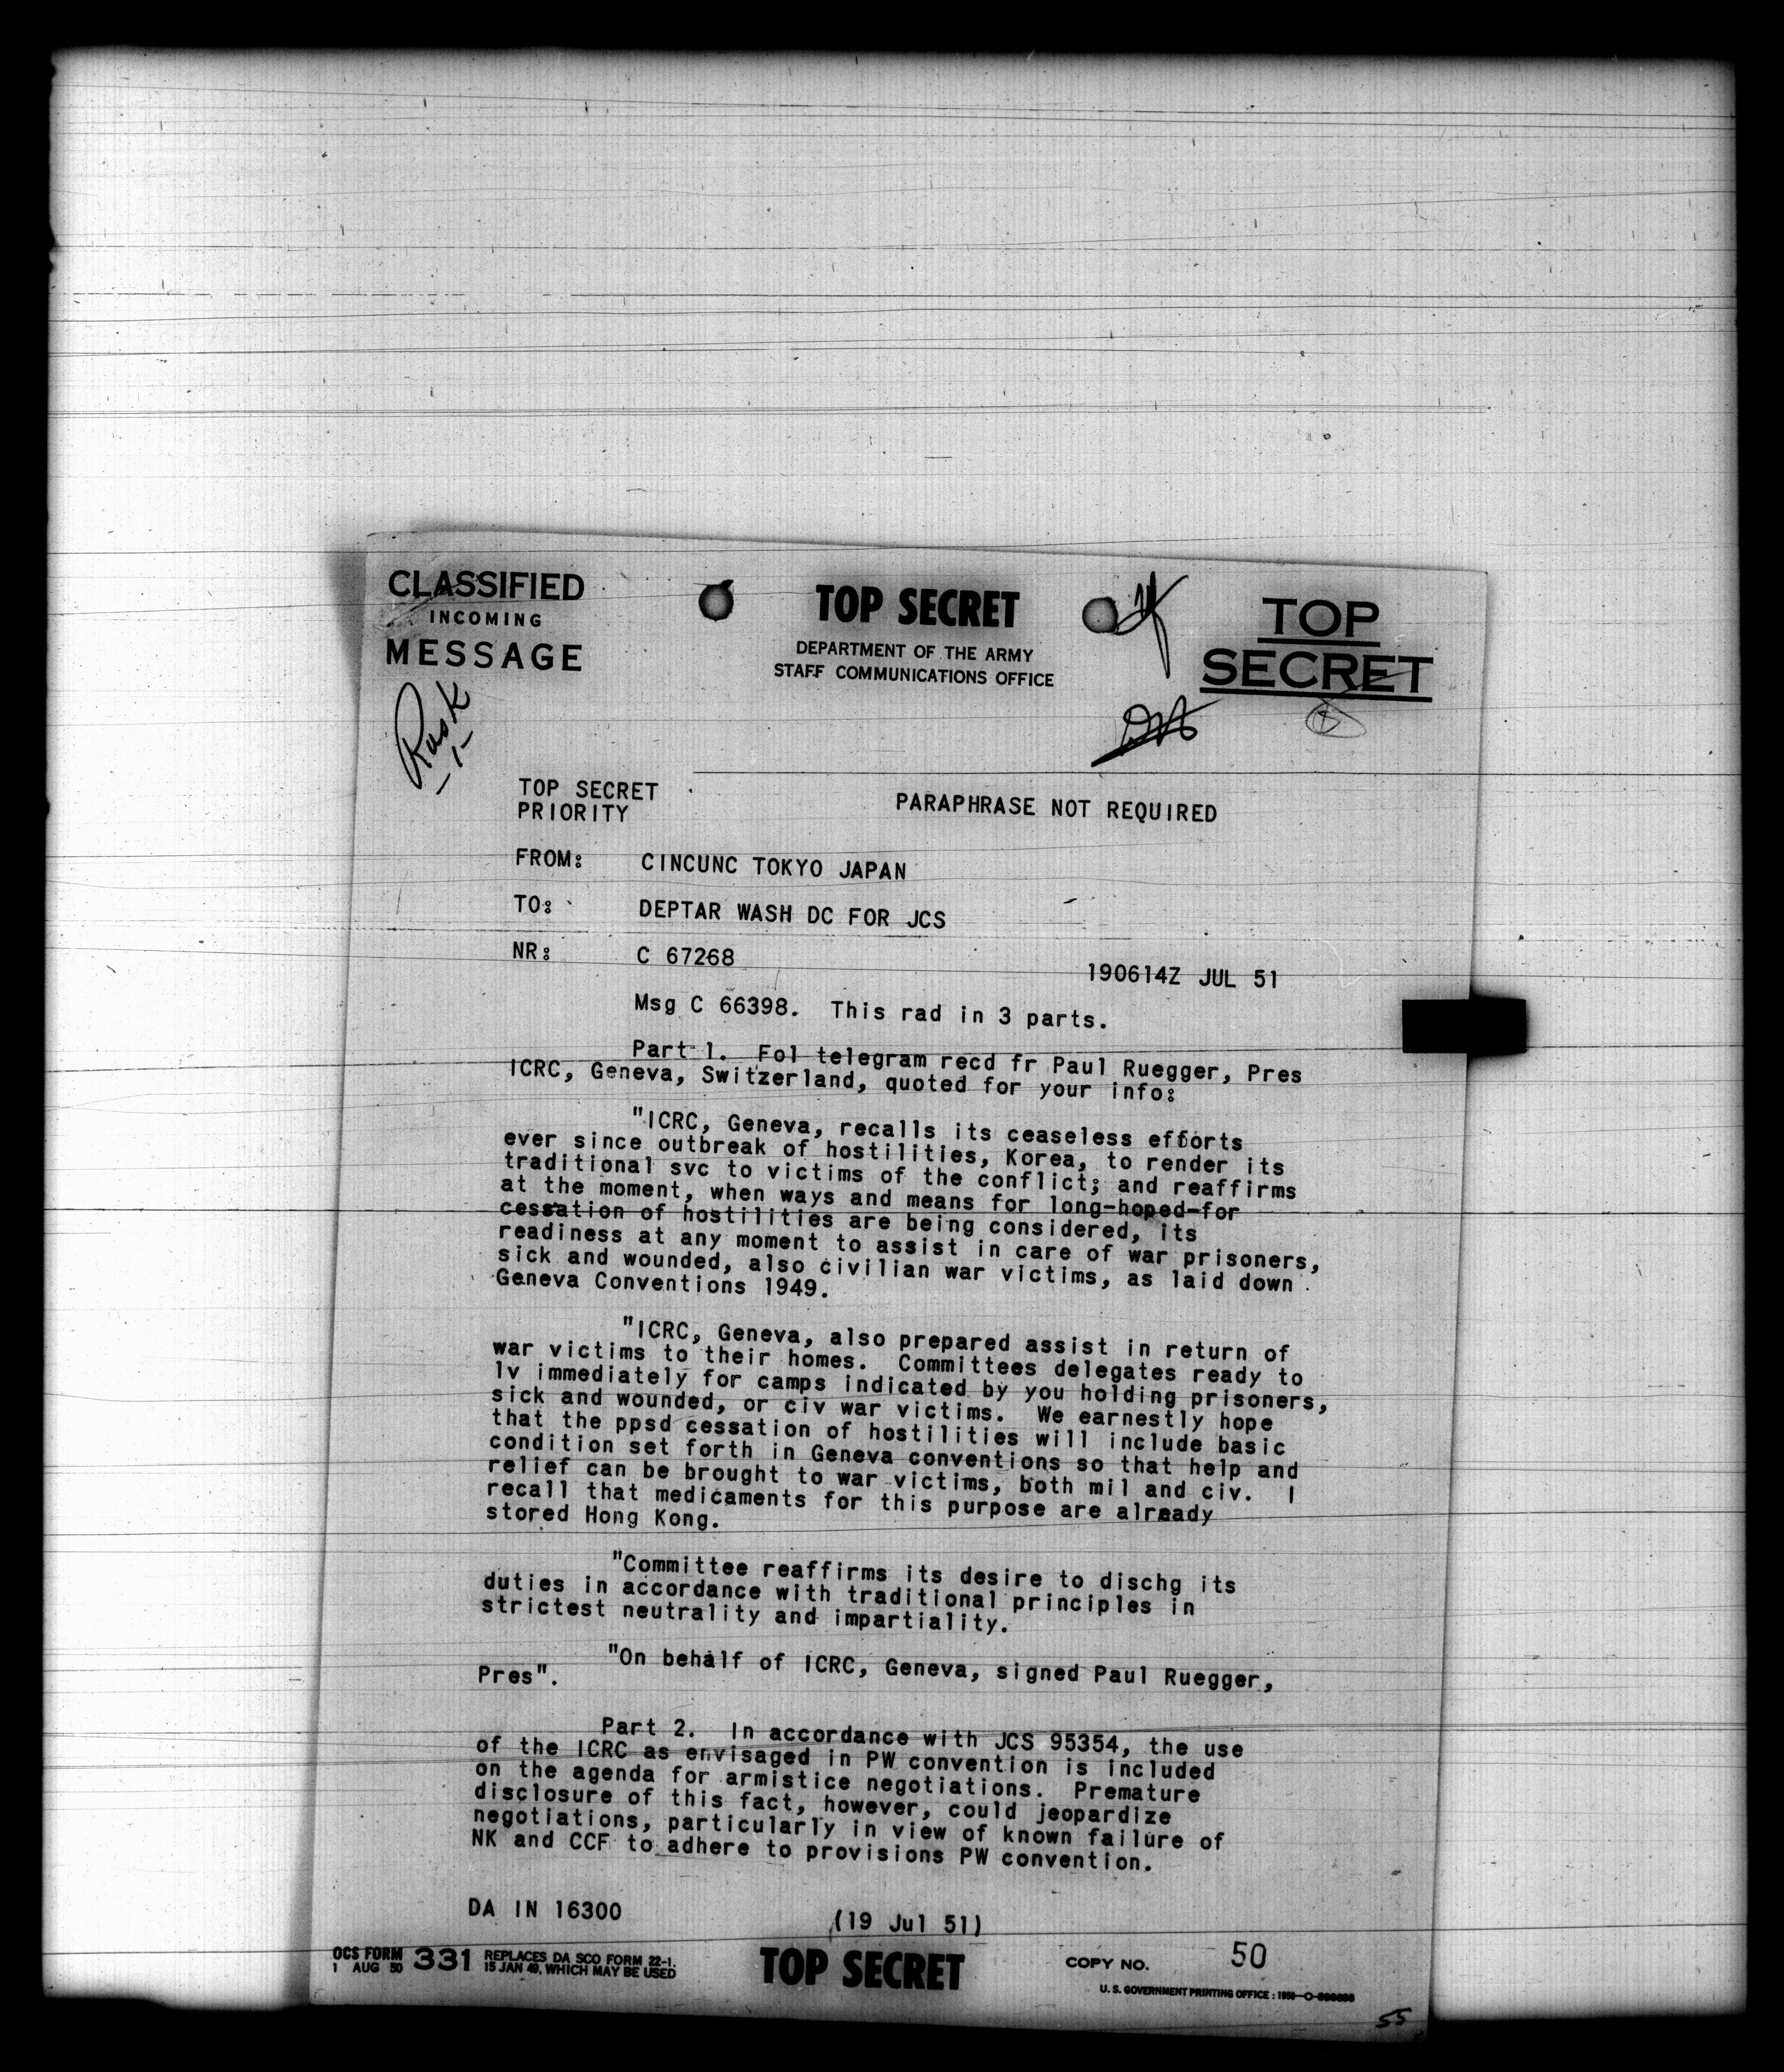 CLASSIFIED
INCOMING
MESSAGE
TOP SECRET
DEPARTMENT OF THE ARMY
STAFF COMMUNICATIONS OFFICE
TOP
SECRET
Rusk
-1-
TOP SECRET
PRIORITY
PARAPHRASE NOT REQUIRED
FROM: CINCUNC TOKYO JAPAN
TO: DEPTAR WASH DC FOR JCS
NR: C 67268
190614Z JUL 51
Msg C 66398. This rad in 3 parts.
Part 1. Fol telegram recd fr Paul Ruegger, Pres
ICRC, Geneva, Switzerland, quoted for your info:
"ICRC, Geneva, recalls its ceaseless efforts
ever since outbreak of hostilities, Korea, to render its
traditional svc to victims of the conflict; and reaffirms
at the moment, when ways and means for long-hoped-for
cessation of hostilities are being considered, its
readiness at any moment to assist in care of war prisoners,
sick and wounded, also civilian war victims, as laid down
Geneva Conventions 1949.
"ICRC, Geneva, also prepared assist in return of
war victims to their homes. Committees delegates ready to
lv immediately for camps indicated by you holding prisoners,
sick and wounded, or civ war victims. We earnestly hope
that the ppsd cessation of hostilities will include basic
condition set forth in Geneva conventions so that help and
relief can be brought to war victims, both mil and civ. I
recall that medicaments for this purpose are already
stored Hong Kong.
"Committee reaffirms its desire to dischg its
duties in accordance with traditional principles in
strictest neutrality and impartiality.
"On behalf of ICRC, Geneva, signed Paul Ruegger,
Pres".
Part 2. In accordance with JCS 95354, the use
of the ICRC as envisaged in PW convention is included
on the agenda for armistice negotiations. Premature
disclosure of this fact, however, could jeopardize
negotiations, particularly in view of known failure of
NK and CCF to adhere to provisions PW convention.
DA IN 16300
(19 Jul 51)
OCS FORM 331 REPLACES DA SCO FORM 22-1,
1 AUG 50 15 JAN 49, WHICH MAY BE USED
TOP SECRET
COPY NO. 50
U. S. GOVERNMENT PRINTING OFFICE : 1950
55